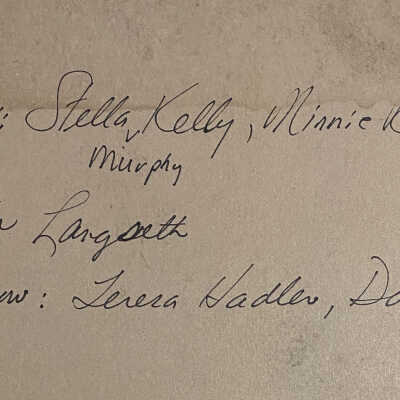 : Stella Kelly, Minnie
Murphy
Langseth
: Teresa Hadler,